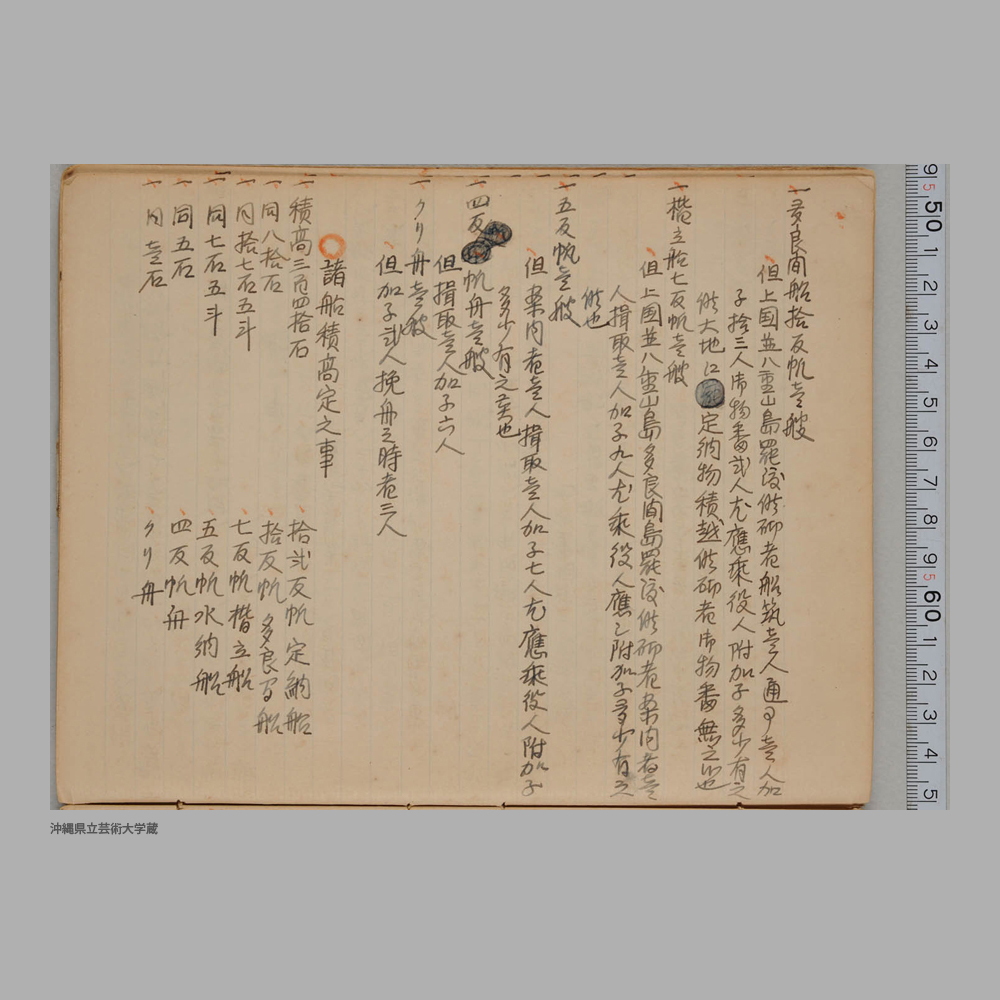 一多良間船拾反帆壱艘
但上国並八重山島罷渡候砌者船筑壱人通事壱人加
子拾三人御物番弐人尤應乗役人附加子多少有之
候大地江定納物積越候砌者御物番無之也
一楷立船七反帆壱艘
但上国並八重山島多良間島罷渡候砌者案内者壱
人揖取壱人加子九人尤乗役人應之附加子多少有之
候也
一五反帆壱艘
但案内者壱人揖取壱人加子七人尤應乗役人附加子
多少有之候也
一四反帆舟壱艘
但揖取壱人加子六人
一クリ舟壱艘
但加子弐人挽舟之時者三人
諸船積高定之事
一積高三百四拾石 拾弐反帆定納船
一同八拾石 拾反帆多良間船
一同拾七石五斗 七反帆楷立船
一同七石五斗 五反帆水納船
一同五石 四反帆舟
一同壱石 クリ舟
9 50 1 2 3 4 5 6 7 8 9 60 1 2 3 4 5
沖縄県立芸術大学蔵